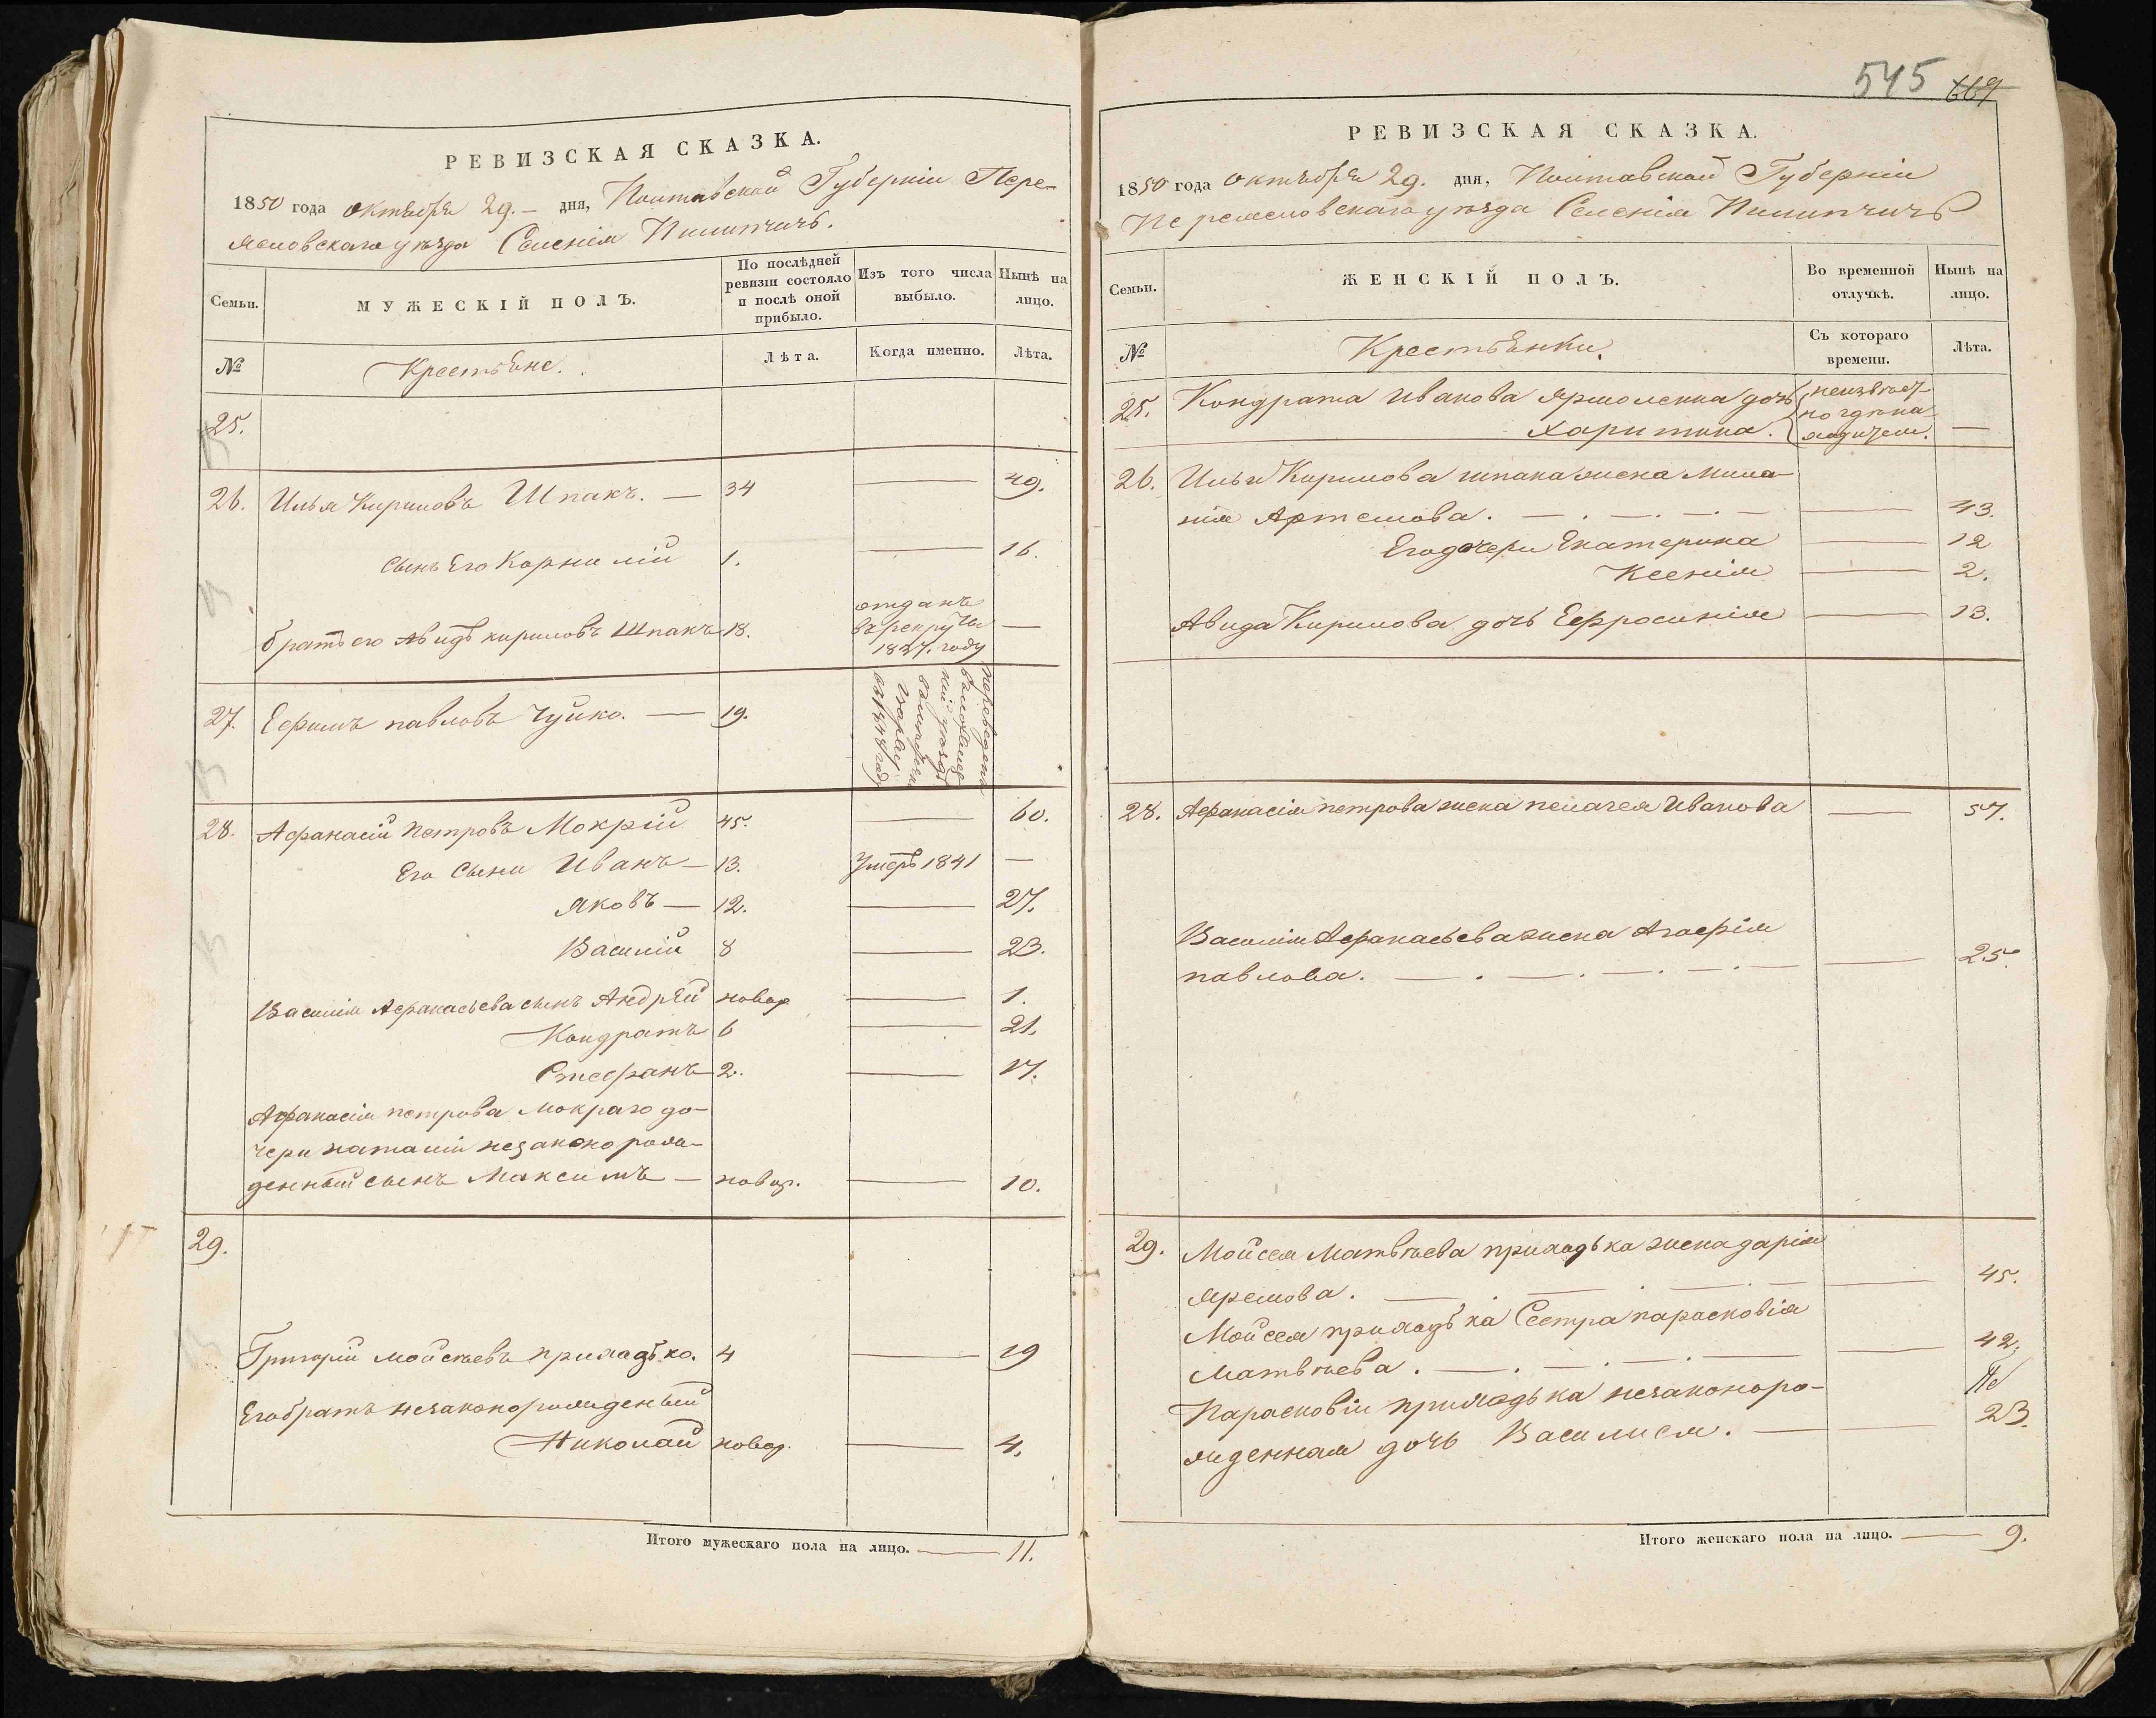 РЕВИЗСКАЯ СКАЗКА.
1850 года октября 29. — дня, Полтавской Губернии Пере-
яславскаго уѣзда Селенія Пилипчичъ.
Семьи.
МУЖЕСКІЙ ПОЛЪ.
По послѣдней ревизіи состояло и послѣ оной прибыло.
Изъ того числа выбыло.
Нынѣ на лицо.
№
Крестьяне.
Лѣта.
Когда именно.
Лѣта.
25.
26. Илья Кириловъ Шпакъ. — 34 — 49.
Сынъ Его Корнилій 1. — 16.
братъ его Авидъ кириловъ Шпакъ 18. отданъ въ рекруты 1837. году —
27. Ефимъ павловъ Чуйко. — 19. переведенъ
въ 1848 году
28. Афанасій Петровъ Мокрій 45. — 60.
Его Сыни Иванъ — 13. Умеръ 1841 —
Яковъ — 12. — 27.
Василій 8 — 23.
Василія Афанасьева сынъ Андрей новор — 1.
Кондратъ 6 — 21.
Стефанъ 2. — 17.
Афанасія петрова Мокраго до-
чери наталіи незаконорож-
денный сынъ Максимъ — новор. — 10.
29.
Григорій Мойсѣевъ приладько. 4 — 19
Его братъ незаконорожденый
Николай новор. — 4.
Итого мужескаго пола на лицо. — 11.
545 669
РЕВИЗСКАЯ СКАЗКА.
1850 года октября 29. дня, Полтавской Губерніи
Переяславскаго уѣзда Селенія Пилипчичъ
Семьи.
ЖЕНСКІЙ ПОЛЪ.
Во временной отлучкѣ.
Нынѣ на лицо.
№
Крестьянки.
Съ котораго времени.
Лѣта.
25. Кондрата Иванова Ярмоленка дочь
Харитина. неизвѣст-
но гдѣ на-
ходится. —
26. Ильи Кирилова шпака жена Мила-
нія Артемова. — 43.
Его дочери Екатерина — 12
Ксенія — 2.
Авида Кирилова дочь Ефросинія — 13.
28. Афанасія петрова жена пелагея Иванова — 57.
Василія Афанасьева жена Агафія
павлова. — 25.
29. Мойсея Матвѣева приладька жена дарія
Яремова. — 45.
Мойсея приладька Сестра парасковія
Матвѣева. — 42.
Парасковіи приладька незаконоро-
жденная дочь Василиса. — 23.
Итого женскаго пола на лицо. — 9.